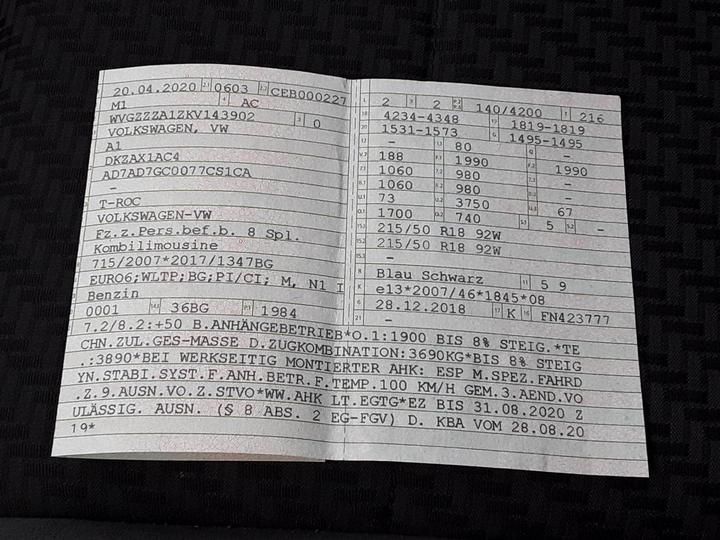 20.04.2020 0603 CEB000227
M1 AC
WVGZZZA1ZKV143902 0
VOLKSWAGEN, VW
A1
DKZAX1AC4
AD7AD7GC0077CS1CA
–
T-ROC
VOLKSWAGEN-VW
Fz.z.Pers.bef.b. 8 Spl.
Kombilimousine
715/2007*2017/1347BG
EURO6;WLTP;BG;PI/CI; M, N1 I
Benzin
0001 36BG 1984
2 2 140/4200 216
4234-4348 1819-1819
1531-1573 1495-1495
– 80 –
188 1990 1990
1060 980 –
1060 980 –
73 3750 67
1700 740 5 –
215/50 R18 92W
215/50 R18 92W
–
Blau Schwarz 5 9
e13*2007/46*1845*08
28.12.2018 K FN423777
–
7.2/8.2:+50 B.ANHÄNGEBETRIEB*O.1:1900 BIS 8% STEIG.*TE
CHN.ZUL.GES-MASSE D.ZUGKOMBINATION:3690KG*BIS 8% STEIG
.:3890*BEI WERKSEITIG MONTIERTER AHK: ESP M.SPEZ.FAHRD
YN.STABI.SYST.F.ANH.BETR.F.TEMP.100 KM/H GEM.3.AEND.VO
.Z.9.AUSN.VO.Z.STVO*WW.AHK LT.EGTG*EZ BIS 31.08.2020 Z
ULÄSSIG. AUSN. (§ 8 ABS. 2 EG-FGV) D. KBA VOM 28.08.20
19*